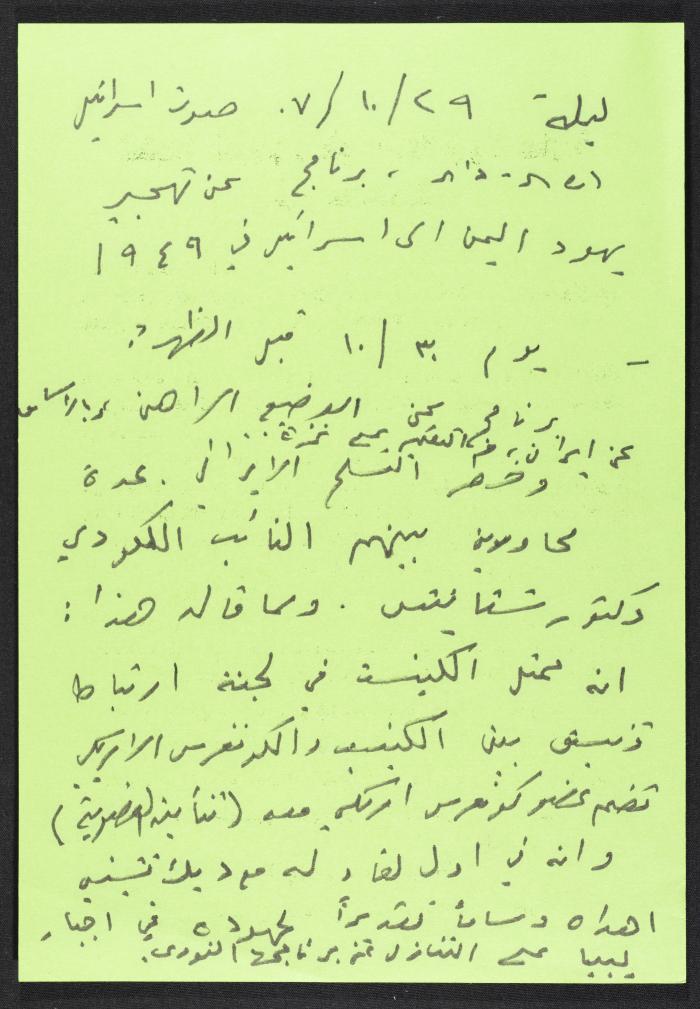 ليلة ٢٩/١٠/٠٧ صوت اسرائيل
برنامج عن تهجير
يهود اليمن الى اسرائيل في ١٩٤٩
– يوم ٣٠/١٠ قبل الظهر:
برنامج عن الوضع الراهن
عن ايران،
وخطر التسلح الايراني. عدة
محاورين بينهم النائب الليكودي
دكتور شتاينتس. ومما قاله هذا:
انه يمثل الكنيست في لجنة ارتباط
تنسيق بين الكنيست والكونغرس الامريكي
تضم عضو كونغرس امريكي معه (ثنائية العضوية)
وانه في اول لقاء له مع ديك تشيني
اهداه وساماً تقديراً لجهوده في اجبار
ليبيا على التنازل عن برنامجها النووي.